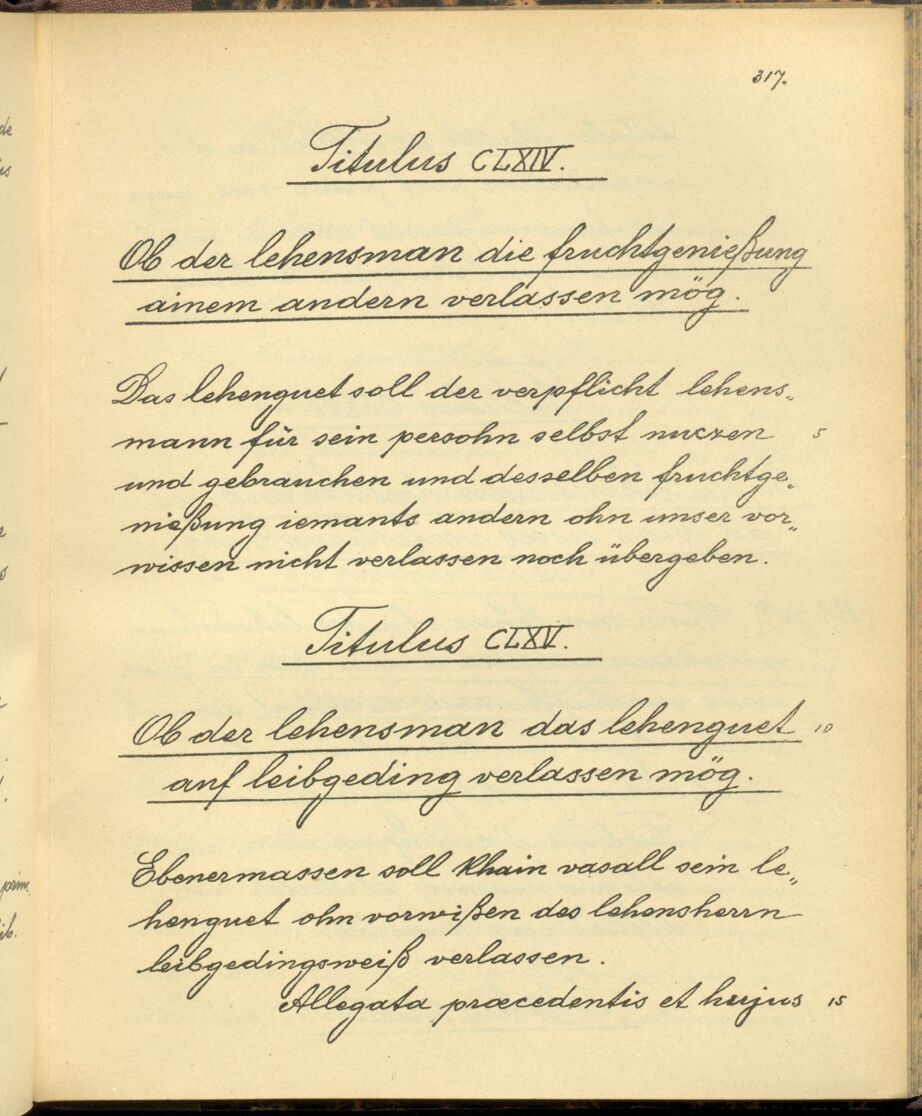 317.
Titulus CLXIV.
Ob der lehensman die fruchtgenießung
ainem andern verlassen mög.
Das lehenguet soll der verpflicht lehens„
mann für sein persohn selbst nuczen 5
und gebrauchen und desselben fruchtge„
nießung iemants andern ohn unser vor„
wissen nicht verlassen noch übergeben.
Titulus CLXV.
Ob der lehensman das lehenguet 10
auf leibgeding verlassen mög.
Ebenermassen soll khain vasall sein le„
henguet ohn vorwißen des lehensherrn
leibgedingsweiß verlassen.
Allegata præcedentis et hujus 15